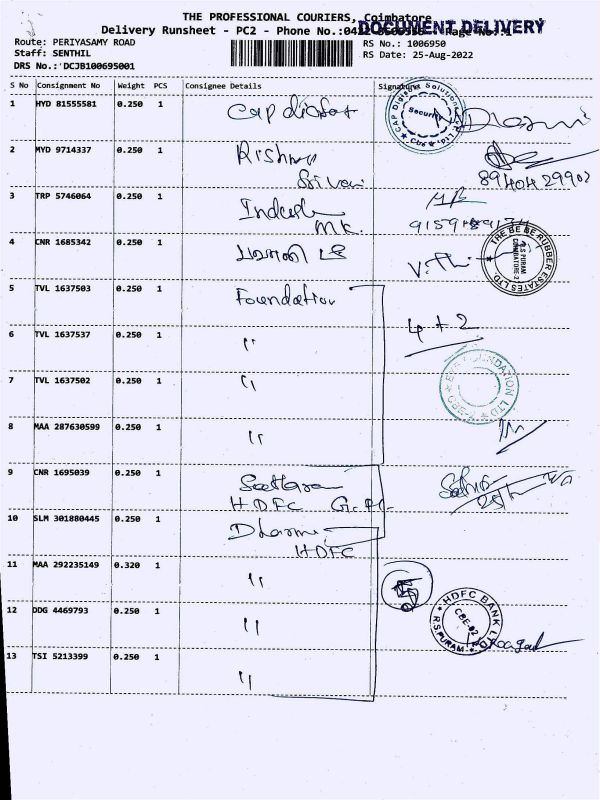 THE PROFESSIONAL COURIERS, Coimbatore
DOCUMENT DELIVERY
Delivery Runsheet - PC2 - Phone No.:0422 Page No.:1
Route: PERIYASAMY ROAD
RS No.: 1006950
Staff: SENTHIL
RS Date: 25-Aug-2022
DRS No.: DCJB100695001
S No Consignment No Weight PCS Consignee Details Signature
1 HYD 81555581 0.250 1
CAP Digisoft Solutions Ltd Security Cbe
2 MYD 9714337 0.250 1
3 TRP 5746064 0.250 1 Indush
MK.
4 CNR 1685342 0.250 1
THE BE BE RUBBER ESTATES LTD. R.S PURAM COIMBATORE-2
5 TVL 1637503 0.250 1 Foundation
4 + 2
6 TVL 1637537 0.250 1 "
7 TVL 1637502 0.250 1 "
FOUNDATION
8 MAA 287630599 0.250 1 "
9 CNR 1695039 0.250 1
HDFC
10 SLM 301880445 0.250 1
HDFC
11 MAA 292235149 0.320 1 "
5
12 DDG 4469793 0.250 1 "
HDFC BANK LTD CBE-02 RSPURAM
13 TSI 5213399 0.250 1 "